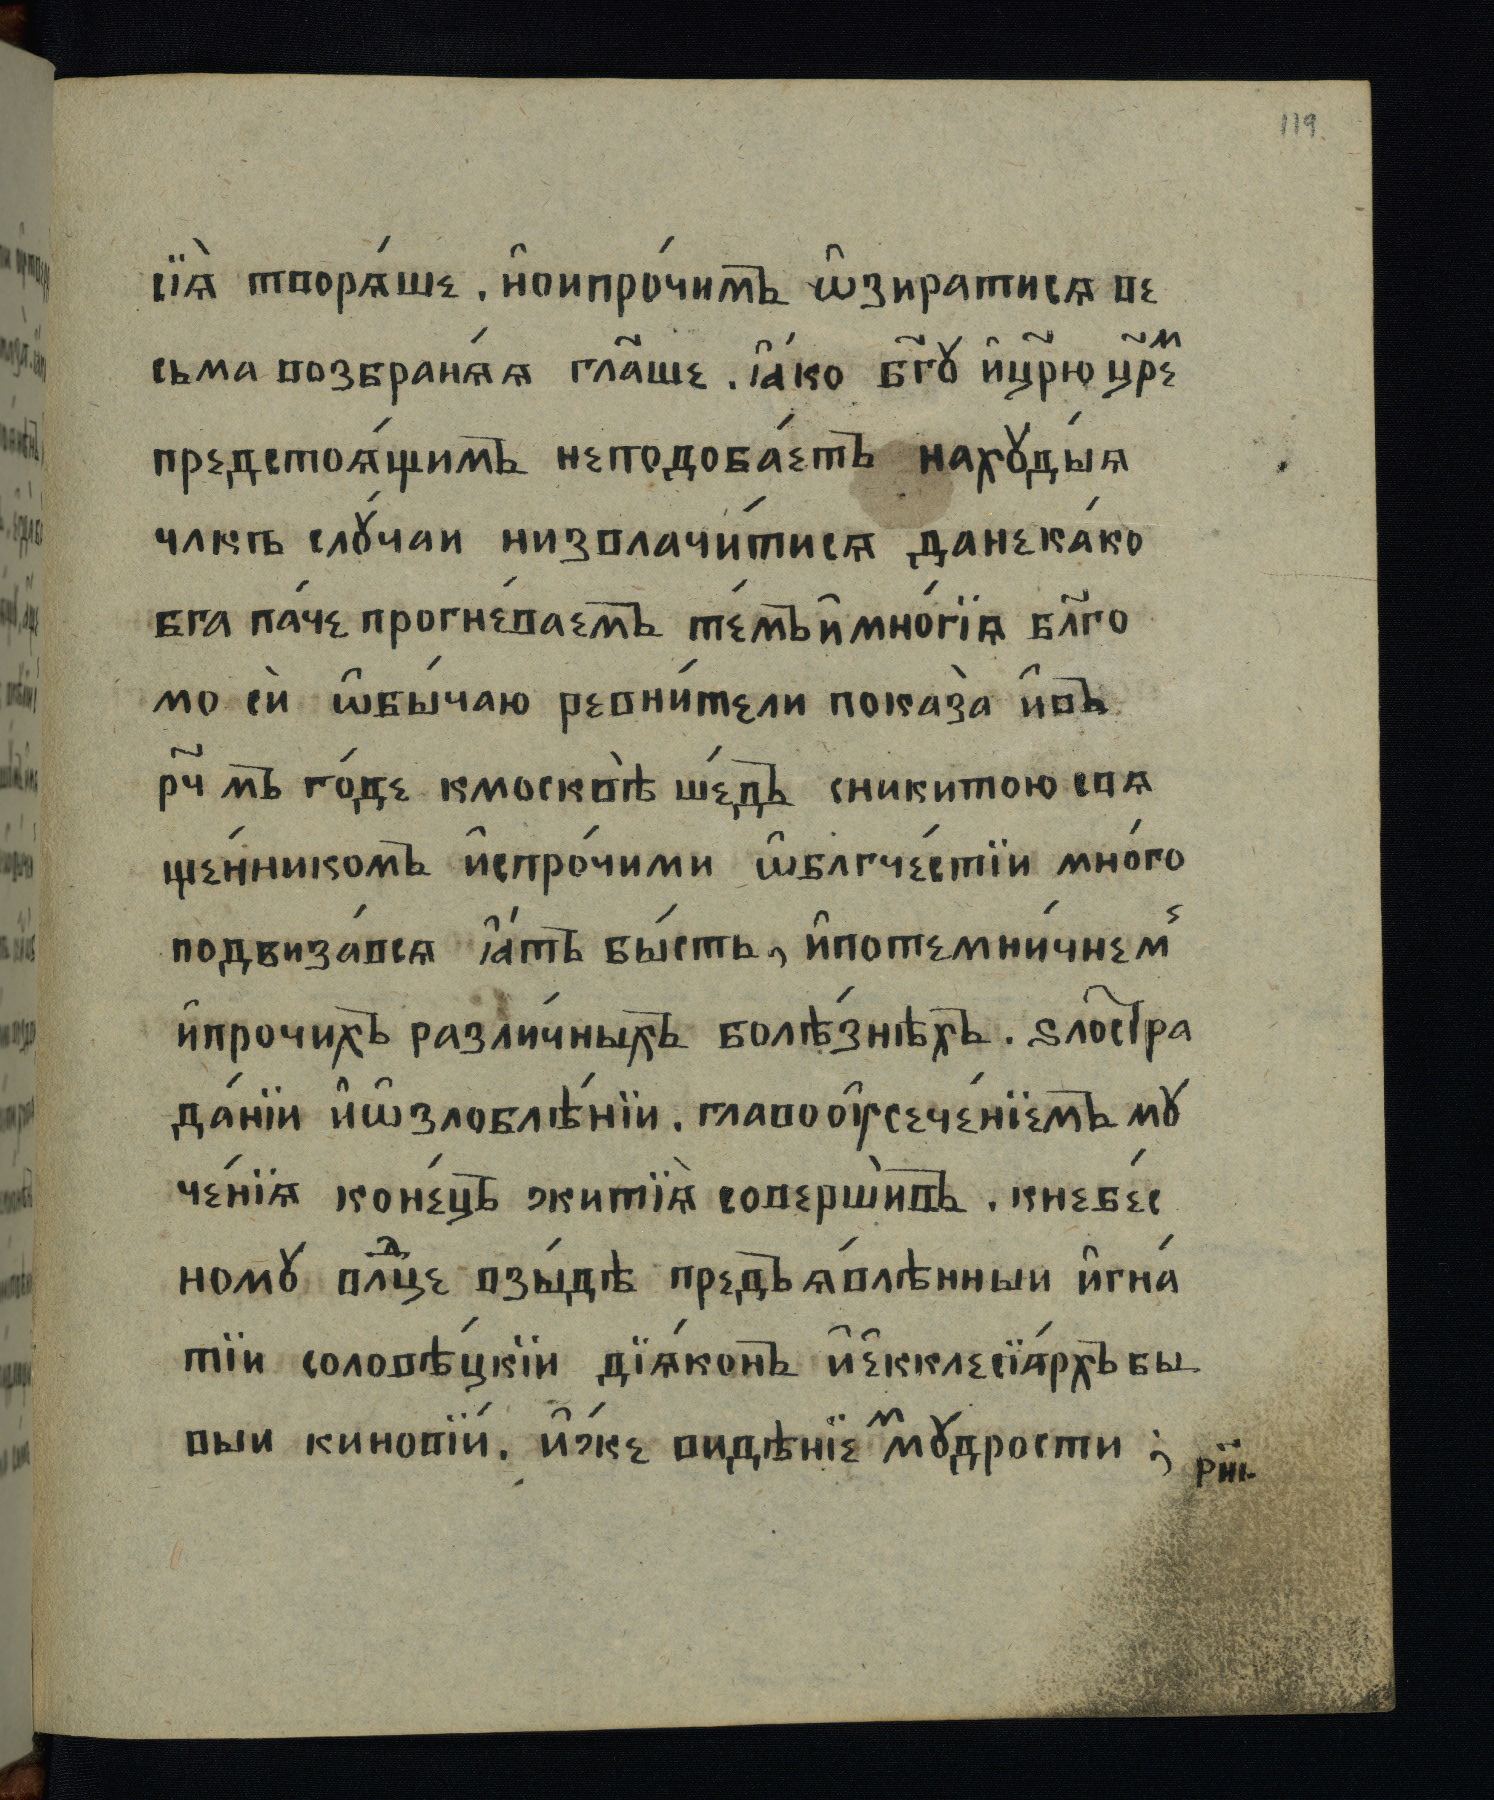 119
сїѧ̀ творѧ́ше . но̑ипро́чимъ ѡ̑зиратисѧ ве
сьма возбранѧ́ѧ гл҃аше . ꙗ҆́ко бг҃ꙋ и҆цр҃ю цр҃еⷨ
предстоѧ́щимъ неподоба́етъ нахꙋды́ѧ
члкѣ слꙋ́чаи низвлачи́тисѧ данека́ко
бга па́че прогне́ваемъ те́мъ и҆мно́гїѧ бл҃го
мо сѝ ѡ҆бы́чаю ревни́тели показа̀ и҆въ
рч҃ мъ го́де кмосквѣ̀ ше́дъ сникитою свѧ
ще́нникомъ и҆спро́чими ѡ҆блгче́стїи мно́го
подвиза́всѧ ꙗ҆́тъ бы́сть, и҆потемни́чнемⷭ
и҆прочихъ разли́чныхъ болѣ́знѣхъ . ѕлостра
да́нїи и҆ѡ҆злоблѣ́нїи . главоѿсече́нїемъ мꙋ
че́нїѧ коне́цъ житїѧ̀ соверши̇въ . кнебе́с
номꙋ влⷣце взы́дѣ предъѧ́влѣнныи и҆гна́
тїи соловѣ́цкїи дїѧ́конъ и҆е҆кклесїа́рхъ бы
выи кинові́и . и҆́же видѣнїеⷨ мꙋ́дрости ;